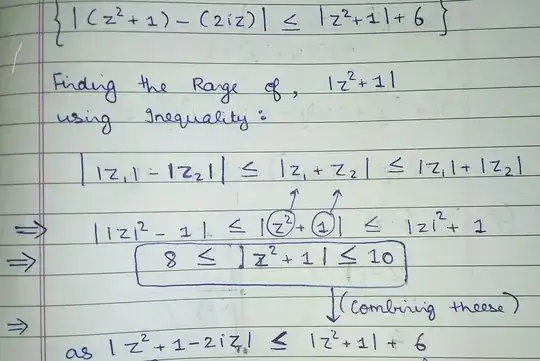 {|(z²+1)-(2iz)| ≤ |z²+1|+6}
Finding the Range of, |z²+1|
using Inequality:
||z₁|-|z₂|| ≤ |z₁+z₂| ≤ |z₁|+|z₂|
⇒ ||z|²-1| ≤ |z²+1| ≤ |z|²+1
⇒ 8 ≤ |z²+1| ≤ 10
(Combining theese)
⇒ as |z²+1-2iz| ≤ |z²+1|+6